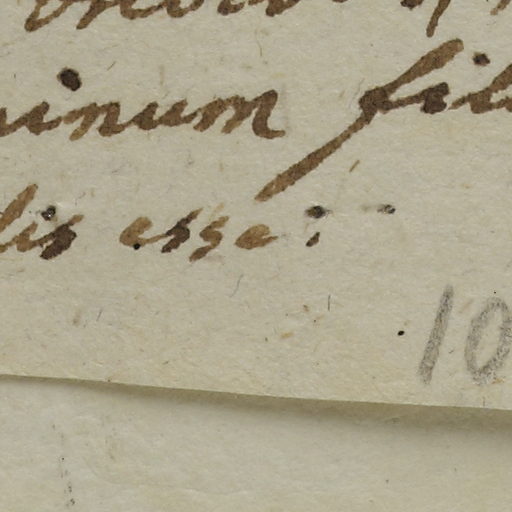 inum fil
lis esse:
10